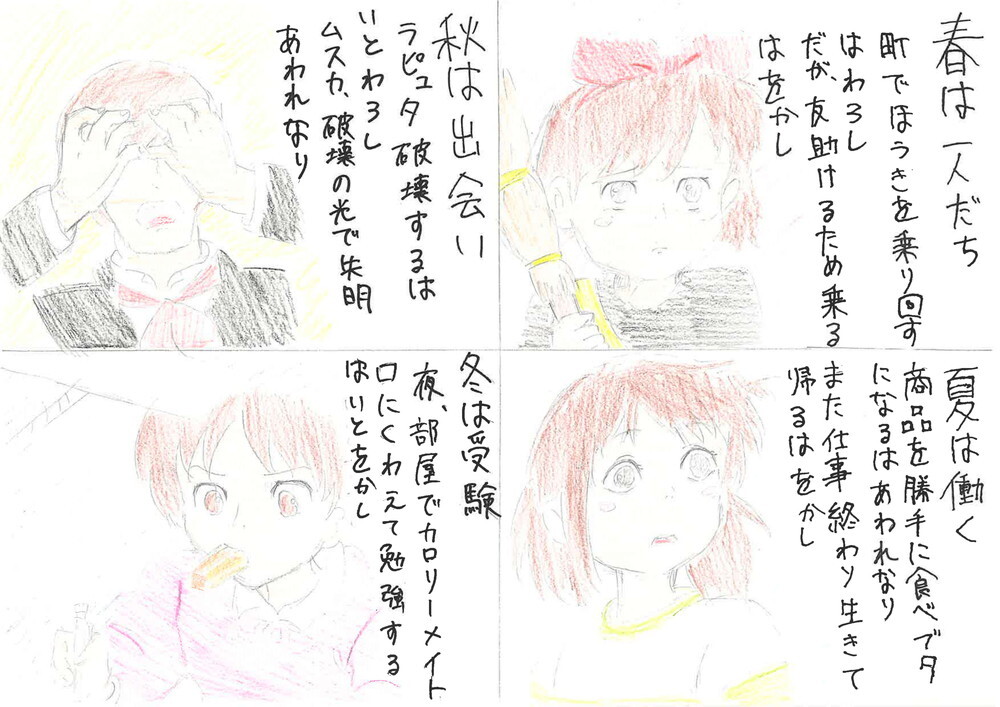 春は一人だち
町でほうきを乗り回す
はわろし
だが、友助けるため乗る
はをかし
夏は働く
商品を勝手に食べブタ
になるはあわれなり
また仕事終わり生きて
帰るはをかし
秋は出会い
ラピュタ破壊するは
いとわろし
ムスカ、破壊の光で失明
あわれなり
冬は受験
夜、部屋でカロリーメイト
口にくわえて勉強する
はいとをかし